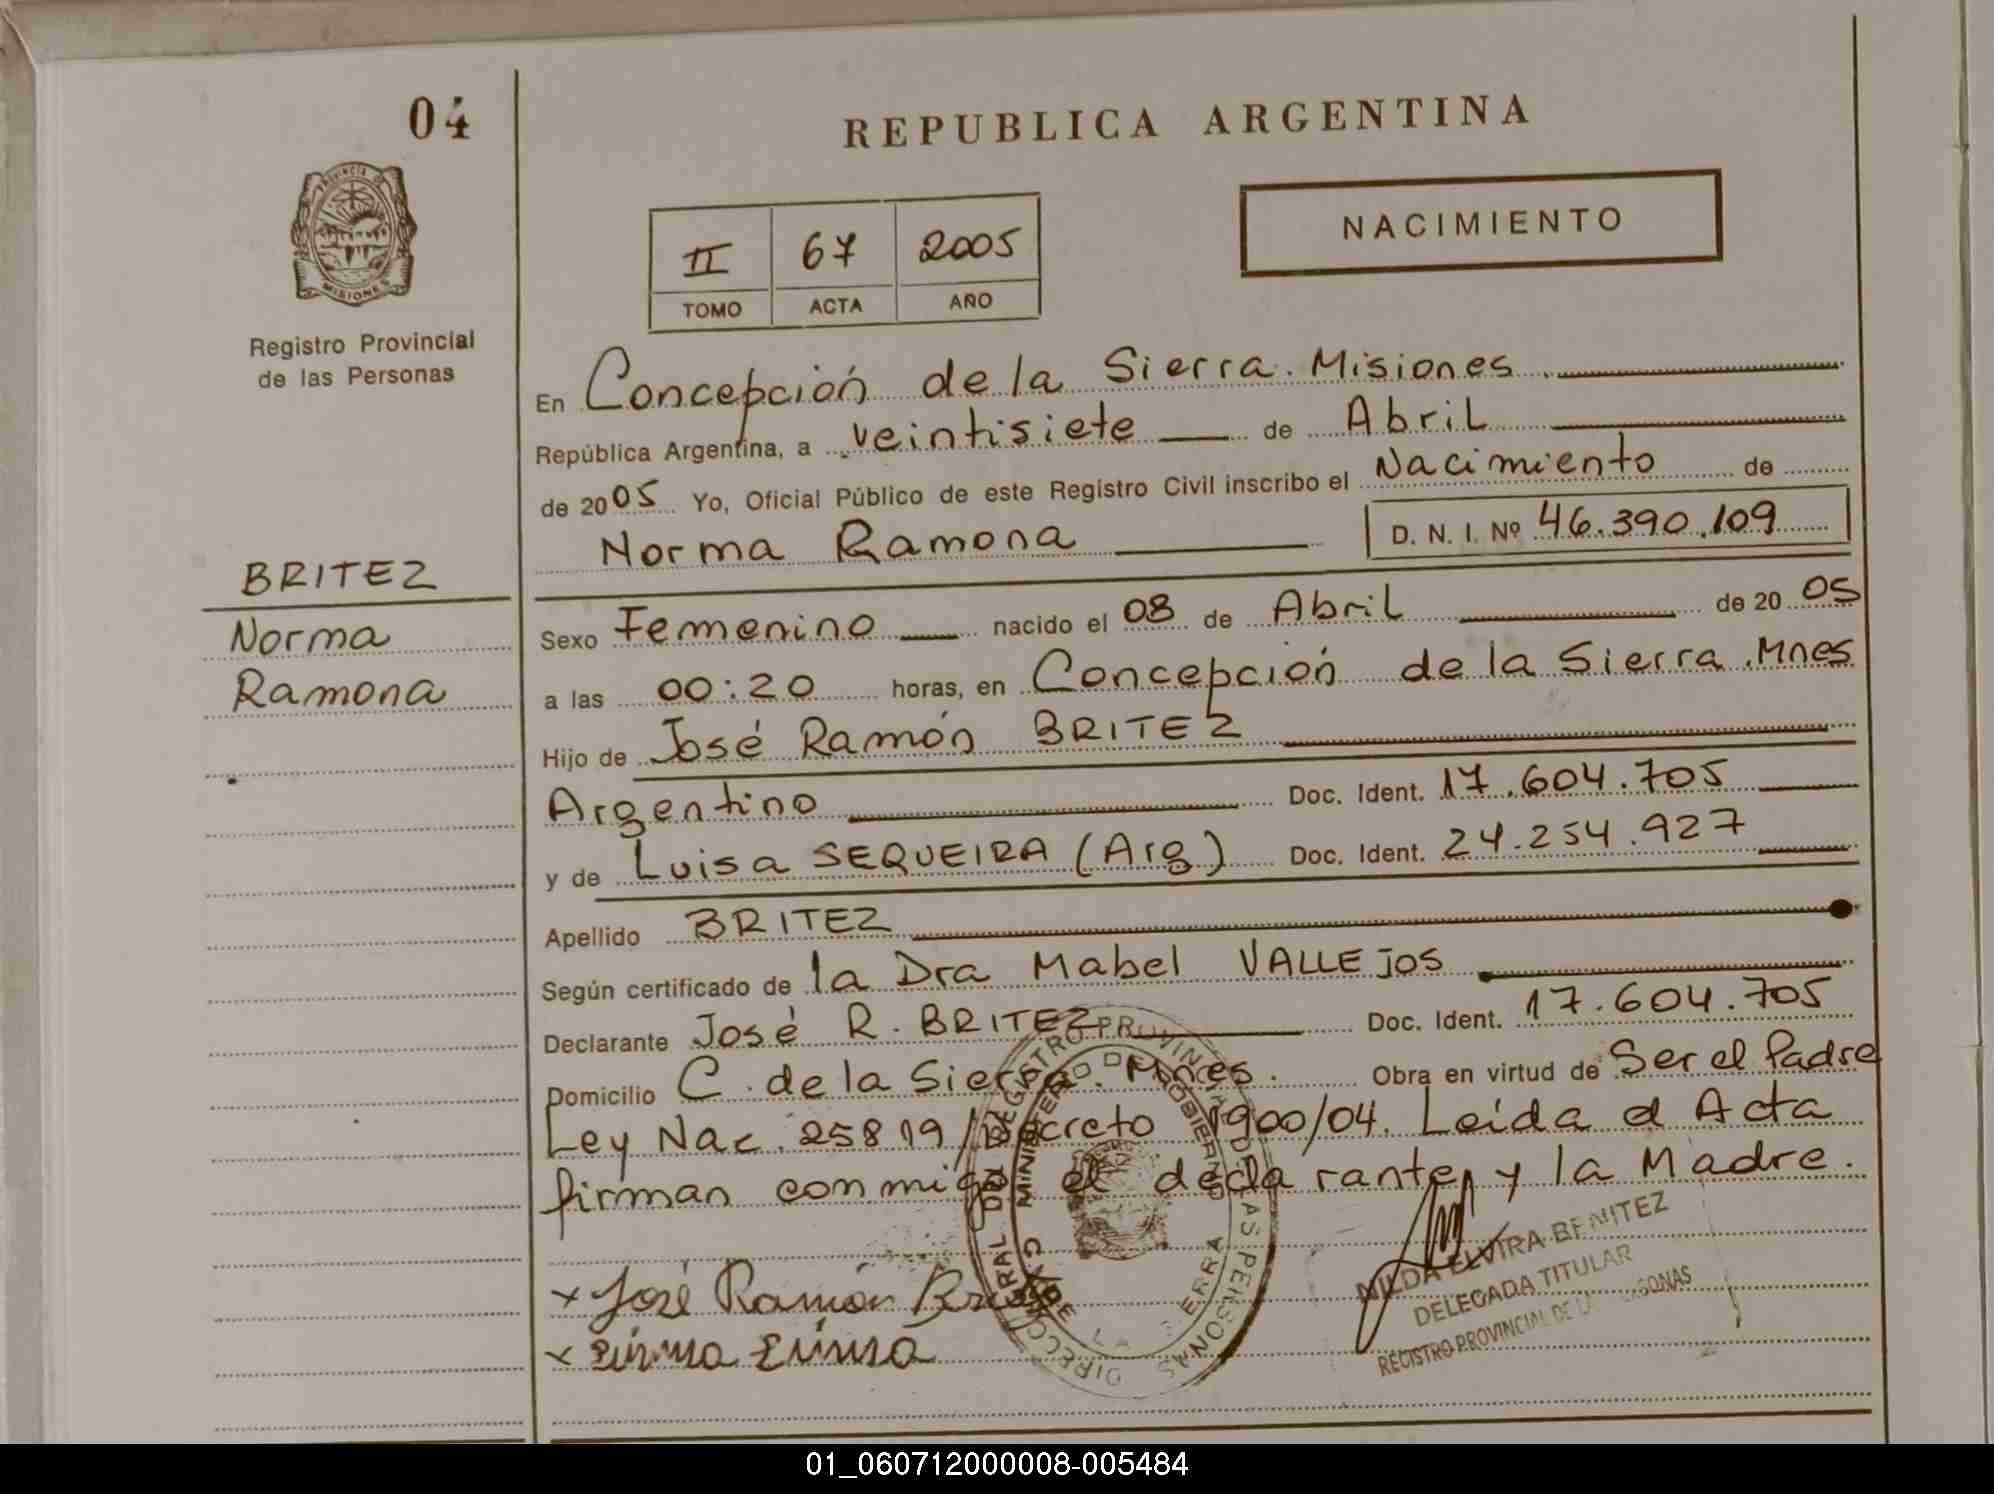 04
REPUBLICA ARGENTINA
PROVINCIA DE
MISIONES
NACIMIENTO
II 67 2005
TOMO ACTA AÑO
Registro Provincial
de las Personas
En Concepción de la Sierra. Misiones
República Argentina, a veintisiete de Abril
de 2005 Yo, Oficial Público de este Registro Civil inscribo el Nacimiento de
Norma Ramona D. N. I. Nº 46.390.109
BRITEZ
Norma
Ramona
Sexo Femenino nacido el 08 de Abril de 2005
a las 00:20 horas, en Concepción de la Sierra.Mnes
Hijo de José Ramón BRITEZ
Argentino Doc. Ident. 17.604.705
y de Luisa SEQUEIRA (Arg) Doc. Ident. 24.254.927
Apellido BRITEZ
Según certificado de la Dra Mabel VALLEJOS
Declarante José R. BRITEZ Doc. Ident. 17.604.705
Domicilio C. de la Sierra. Mnes. Obra en virtud de Ser el Padre
Ley Nac. 25819/Decreto 1900/04. Leída el Acta
firman conmigo el declarante, y la Madre.
x José Ramón
NILDA ELVIRA BENITEZ
DELEGADA TITULAR
REGISTRO PROVINCIAL DE LAS PERSONAS
01_060712000008-005484